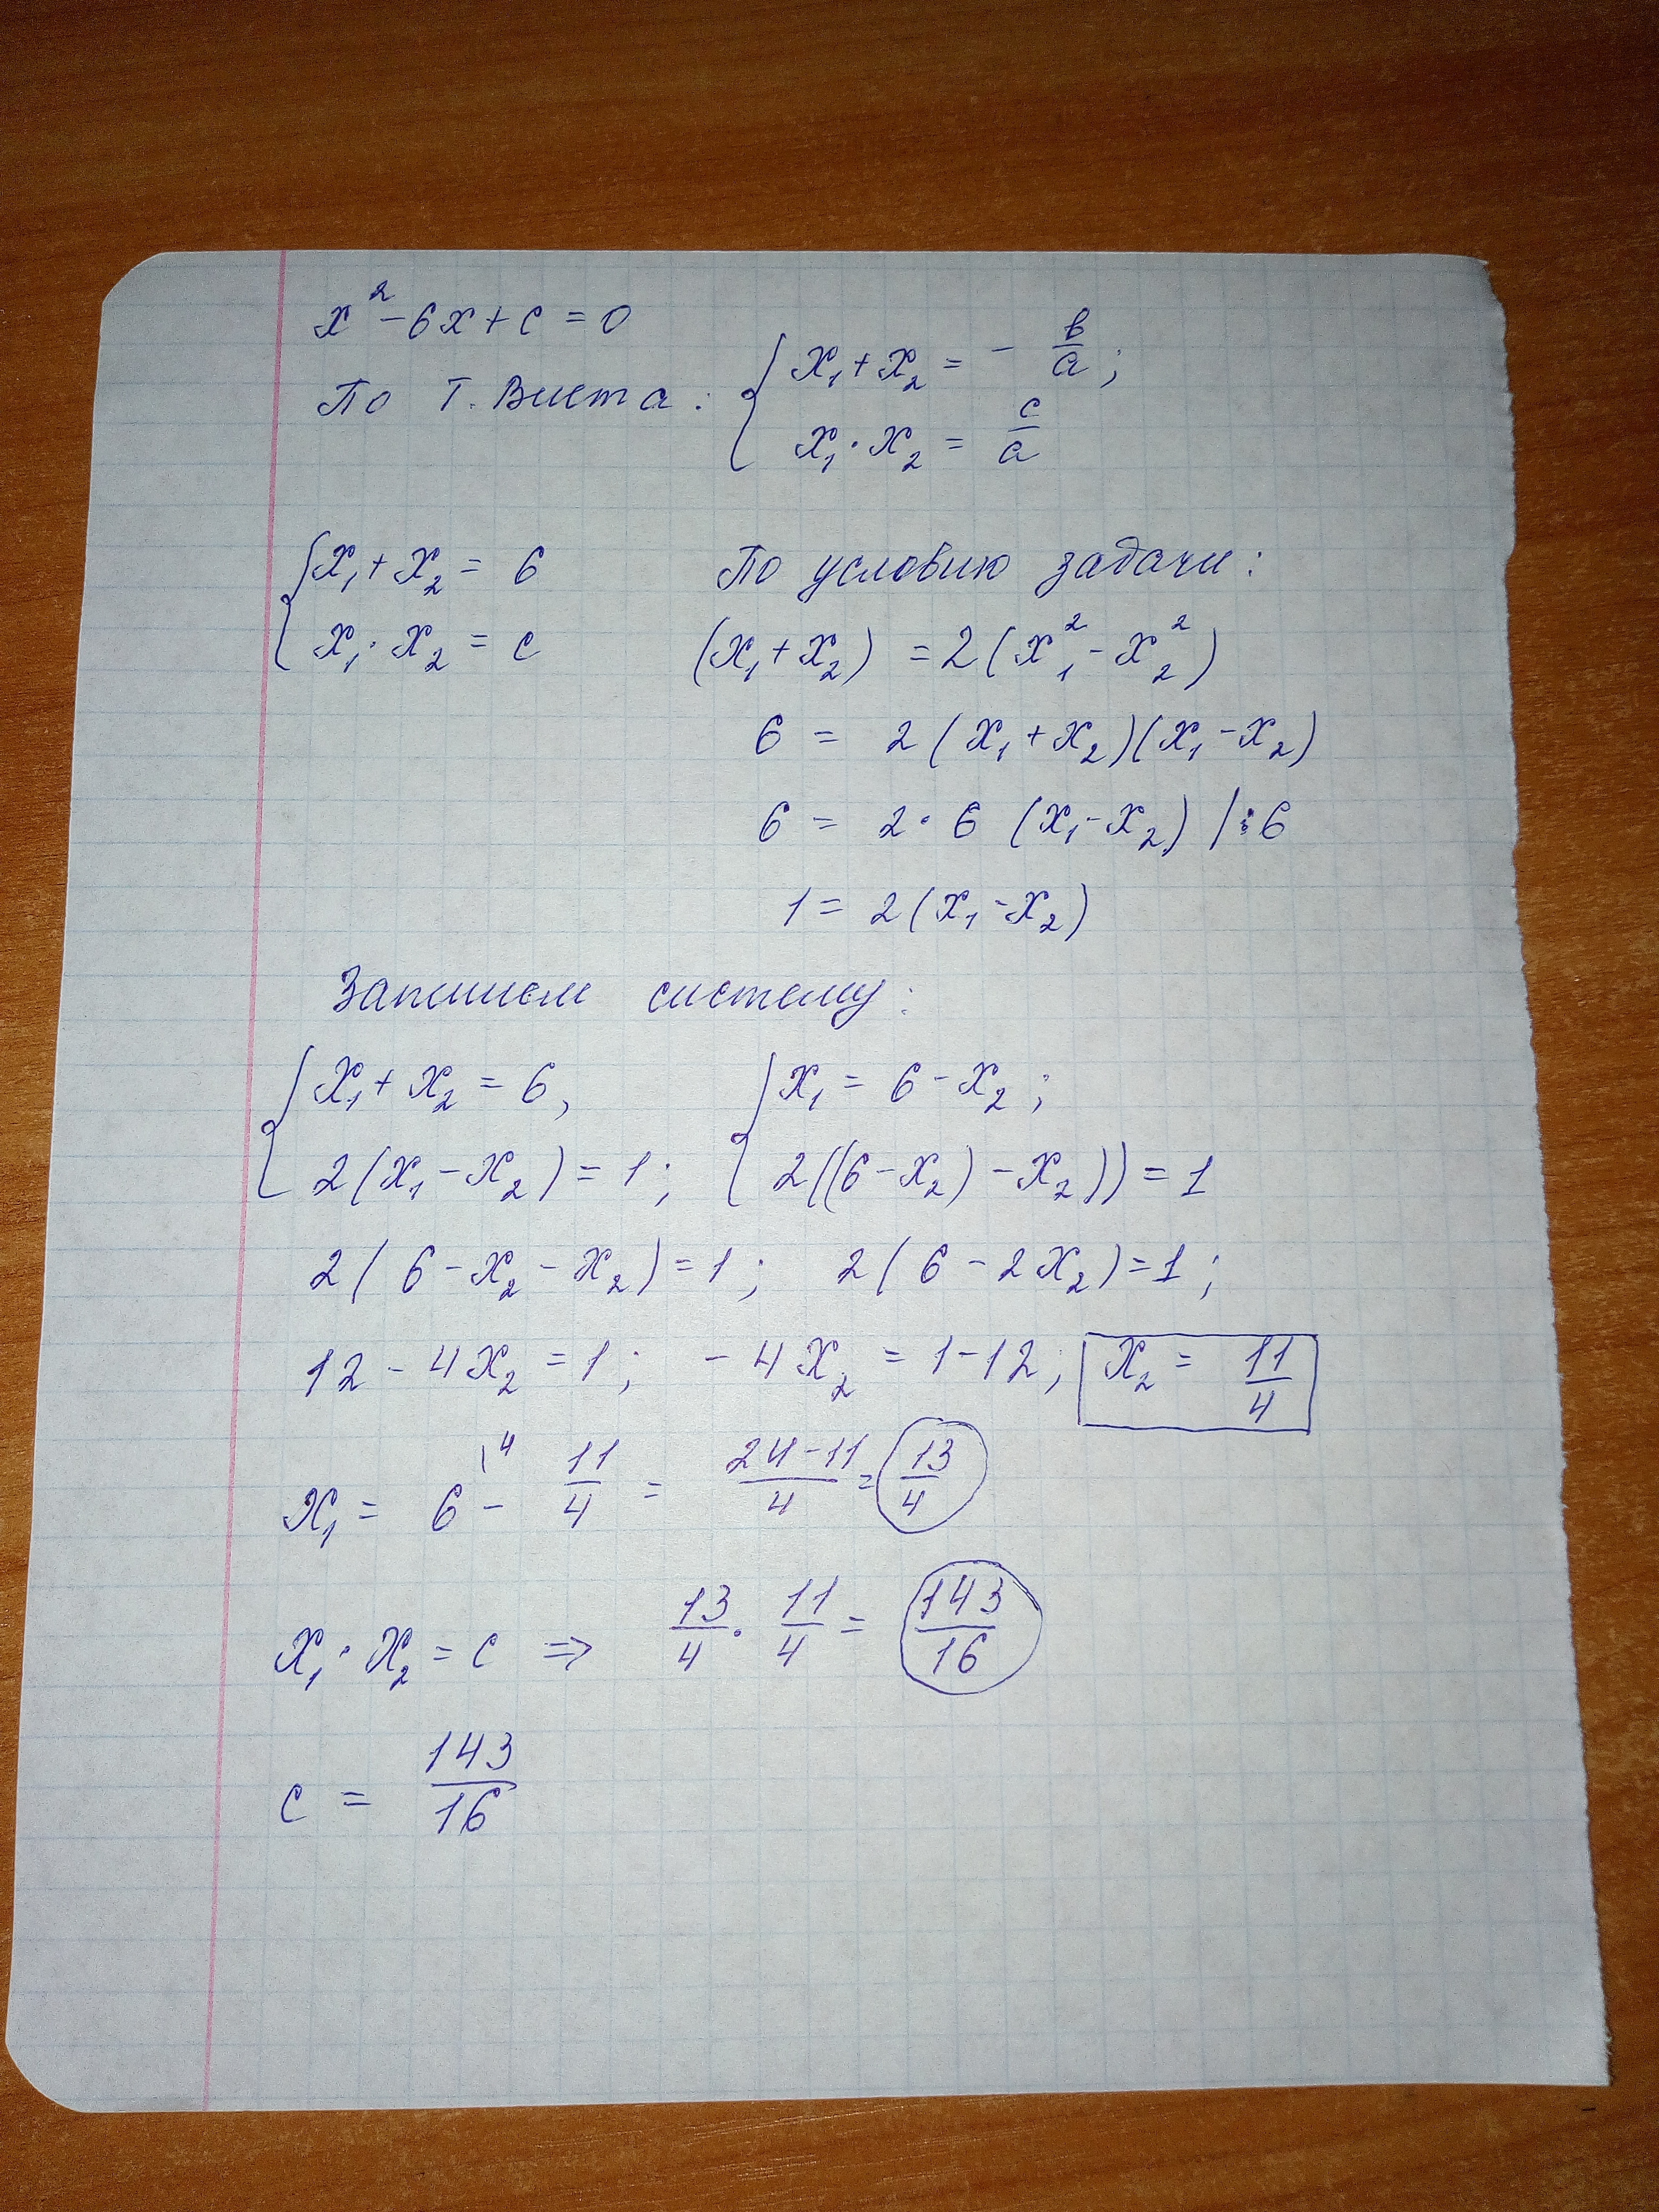 x² - 6x + c = 0
По т. Виета: { x₁ + x₂ = - в/а ;
x₁ · x₂ = c/a
{ x₁ + x₂ = 6
x₁ · x₂ = c
По условию задачи:
(x₁ + x₂) = 2(x₁² - x₂²)
6 = 2(x₁ + x₂)(x₁ - x₂)
6 = 2 · 6 (x₁ - x₂) | : 6
1 = 2(x₁ - x₂)
Запишем систему:
{ x₁ + x₂ = 6, { x₁ = 6 - x₂ ;
2(x₁ - x₂) = 1 ; 2((6 - x₂) - x₂)) = 1
2(6 - x₂ - x₂) = 1 ; 2(6 - 2x₂) = 1 ;
12 - 4x₂ = 1 ; - 4x₂ = 1 - 12 ; x₂ = 11/4
x₁ = 6\⁴ - 11/4 = (24 - 11)/4 = 13/4
x₁ · x₂ = c ⇒ 13/4 · 11/4 = 143/16
c = 143/16